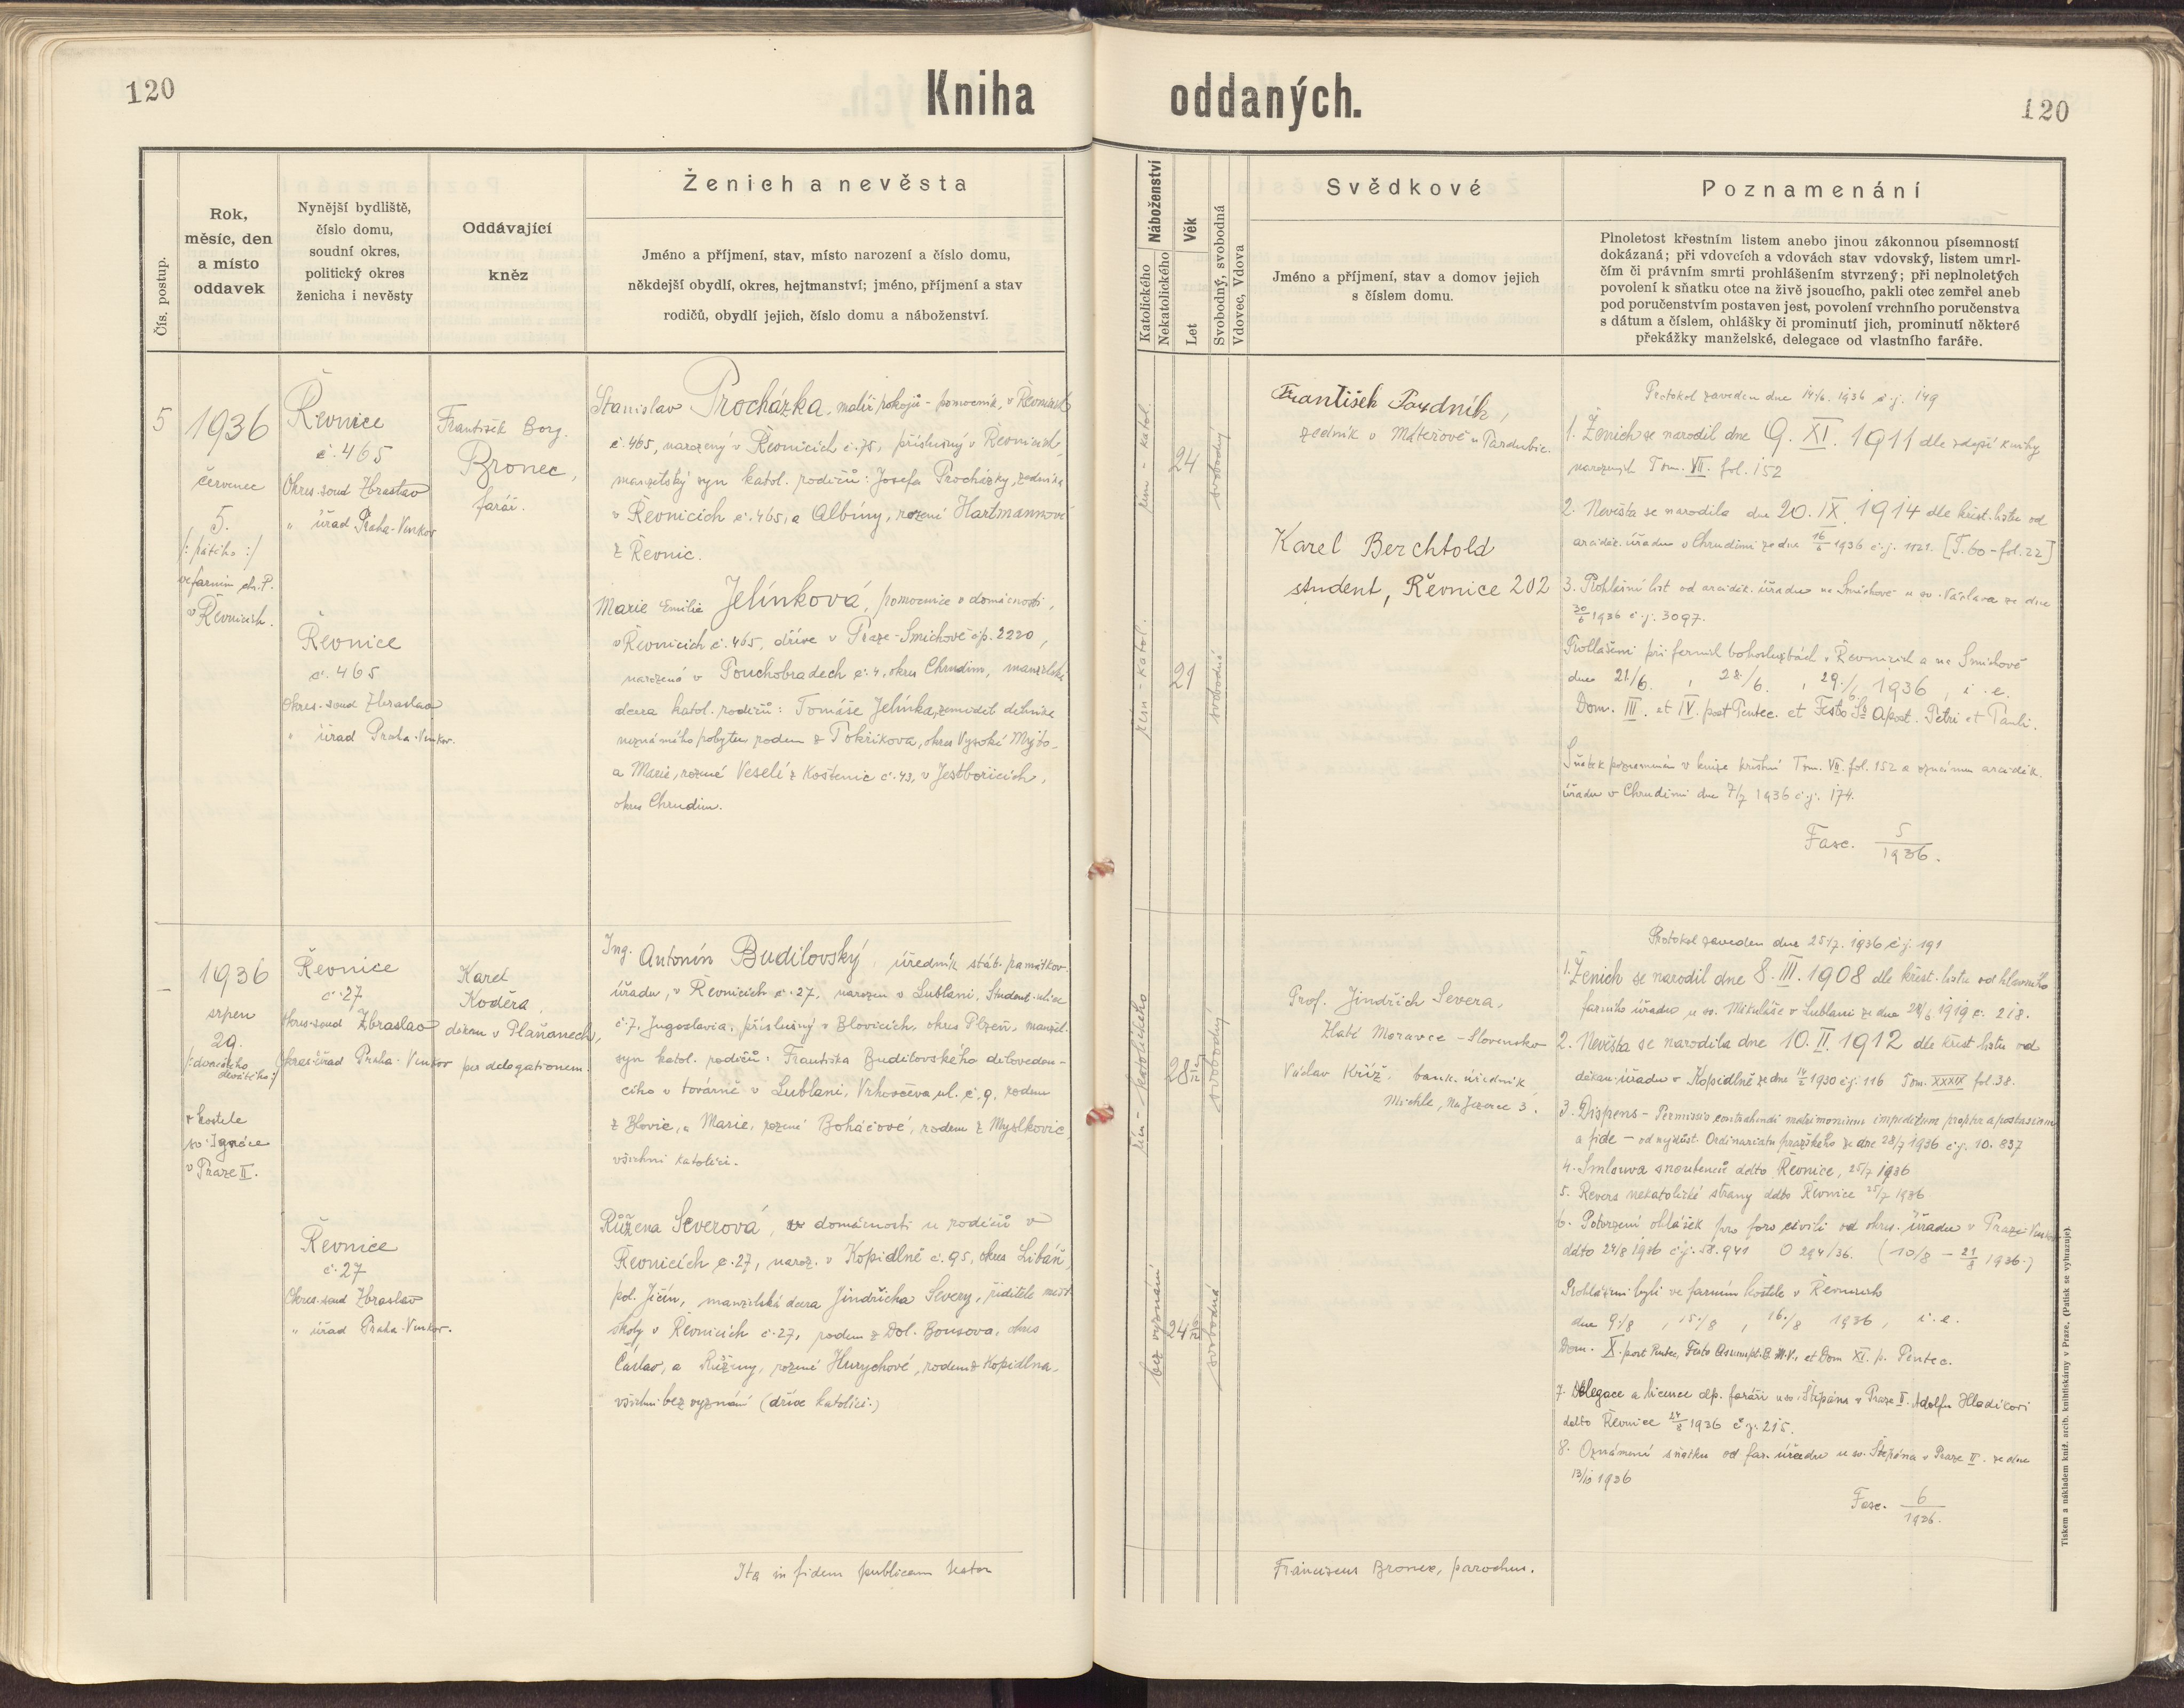 120
Kniha oddaných.
120
Čís. postup.
Rok,
měsíc, den
a místo
oddavek
Nynější bydliště,
číslo domu,
soudní okres,
politický okres
ženicha i nevěsty
Oddávající
kněz
Ženich a nevěsta
Jméno a příjmení, stav, místo narození a číslo domu,
někdejší obydlí, okres, hejtmanství; jméno, příjmení a stav
rodičů, obydlí jejich, číslo domu a náboženství.
Náboženství
Katolického
Nekatolického
Věk
Let
Svobodný, svobodná
Vdovec, Vdova
Svědkové
Jméno a příjmení, stav a domov jejich
s číslem domu.
Poznamenání
Plnoletost křestním listem anebo jinou zákonnou písemností
dokázaná; při vdovcích a vdovách stav vdovský, listem umrl-
čím či právním smrti prohlášením stvrzený; při neplnoletých
povolení k sňatku otce na živě jsoucího, pakli otec zemřel aneb
pod poručenstvím postaven jest, povolení vrchního poručenstva
s dátum a číslem, ohlášky či prominutí jich, prominutí některé
překážky manželské, delegace od vlastního faráře.
5
1936
červenec
5.
/: pátého :/
ve farním ch. P.
v Řevnicích.
Řevnice
č. 465
Okres. soud Zbraslav
" úřad Praha-Venkov
Řevnice
č. 465
Okres. soud Zbraslav
" úřad Praha-Venkov.
František Borg.
Bronec,
farář.
Stanislav Procházka, malíř pokojů - pomocník, v Řevnicích
č. 465, narozený v Řevnicích č. 75, příslušný v Řevnicích,
manželský syn katol. rodičů: Josefa Procházky, zedníka
v Řevnicích č. 465, a Albíny, rozené Hartmannové
z Řevnic.
Marie Emilie Jelínková, pomocnice v domácnosti,
v Řevnicích č. 465, dříve v Praze-Smíchově čp. 2220,
narozená v Pouchobradech č. 4, okres Chrudim, manželská
dcera katol. rodičů: Tomáše Jelínka, zeměděl. dělníka
neznámého pobytu rodem z Pokřikova, okres Vysoké Mýto,
a Marie, rozené Veselé z Koštenic č. 43, v Jestbořicích,
okres Chrudim.
řím - katol.
24
svobodný
řím - katol.
21
svobodná
František Poydník,
zedník v Mateřově u Pardubic.
Karel Berchtold
student, Řevnice 202
Protokol zaveden dne 14/6. 1936 č.j. 149
1. Ženich se narodil dne 9. XI. 1911 dle zdejší knihy
narozených Tom. VII. fol. 152
2. Nevěsta se narodila dne 20. IX. 1914 dle křest. listu od
arciděk. úřadu v Chrudimi ze dne 16/6 1936 č.j. 1521. [T. 60 - fol. 22]
3. Prohlášní list od arciděk. úřadu na Smíchově u sv. Václava ze dne
30/6 1936 č.j. 3097.
Prohlášeni při farních bohoslužbách v Řevnicích a na Smíchově
dne 21/6. , 28/6. , 29./6. 1936, i. e.
Dom. III. et IV. post Pentec. et Festo SS Apost. Petri et Pauli.
Sňatek poznamenán v knize křestní Tom. VII. fol. 152 a oznámen arciděk.
úřadu v Chrudimi dne 7/7 1936 č.j. 174.
Fasc. 5/1936.
–
1936
srpen
29.
/: dvacátého
devátého :/
v kostele
sv. Ignáce
v Praze II.
Řevnice
č. 27
okres. soud Zbraslav
okres. úřad Praha-Venkov
Řevnice
č. 27
Okres. soud Zbraslav
" úřad Praha-Venkov.
Karel
Koděra,
děkan v Plaňanech,
per delegationem.
Ing. Antonín Budilovský, úředník stát. památkov.
úřadu, v Řevnicích č. 27, narozen v Lublani, Student. ulice
č. 7, Jugoslavia, příslušný v Blovicích, okres Plzeň, manžel.
syn katol. rodičů: Františka Budilovského dílovedou-
cího v továrně v Lublani, Vrhovčeva ul. č. 9, rodem
z Blovic, a Marie, rozené Boháčové, rodem z Myslkovic,
všichni katolíci.
Růžena Severová, v domácnosti u rodičů v
Řevnicích č. 27, naroz. v Kopidlně č. 95, okres Libáň,
pol. Jičín, manželská dcera Jindřicha Severy, řiditele měšt.
školy v Řevnicích č. 27, rodem z Dol. Bousova, okres
Čáslav, a Růženy, rozené Hurychové, rodem z Kopidlna,
všichni bez vyznání (dříve katolíci.)
řím - katolického
28
svobodný
bez vyznání
24
svobodná
Prof. Jindřich Severa,
Zlaté Moravce - Slovensko
Václav Kříž, bank. úředník
Michle, Na Jezerce 3.
Protokol zaveden dne 25/7. 1936 č.j. 191
1. Ženich se narodil dne 8. III. 1908 dle křest. listu od hlavního
farního úřadu u sv. Mikuláše v Lublani ze dne 28/6 1919 č. 218.
2. Nevěsta se narodila dne 10. II. 1912 dle křest. listu od
děkan. úřadu v Kopidlně ze dne 1930 č.j. 116 Tom. XXXIX fol. 38.
3. Dispens - Permissio contrahendi matrimonium impeditum propter apostasiam
a fide - od nejdůst. Ordinariatu pražského ze dne 28/7 1936 č.j. 10.837
4. Smlouva snoubenců ddto Řevnice, 25/7 1936
5. Revers nekatolické strany ddto Řevnice 25/7 1936
6. Potvrzení ohlášek pro foro civili od okres. úřadu v Praze-Venkov
ddto 24/8 1936 č.j. 58.941 O 294/36. (10/8 - 21/8 1936.)
Prohlášeni byli ve farním kostele v Řevnicích
dne 9./8 , 15./8 , 16./8 1936, i. e.
Dom. X. post Pentec, Festo Assumpt. B. M. V., et Dom XI. p. Pentec.
7. Delegace a licence dp. faráři u sv. Štěpána v Praze II. Adolfu Hladíkovi
ddto Řevnice 24/8 1936 č.j. 215.
8. Oznámení sňatku od far. úřadu u sv. Štěpána v Praze II. ze dne
13/10 1936
Fasc. 6/1936.
Ita in fidem publicam testor
Franciscus Bronec, parochus.
Tiskem a nákladem kníž. arcib. knihtiskárny v Praze. (Patisk se vyhrazuje).